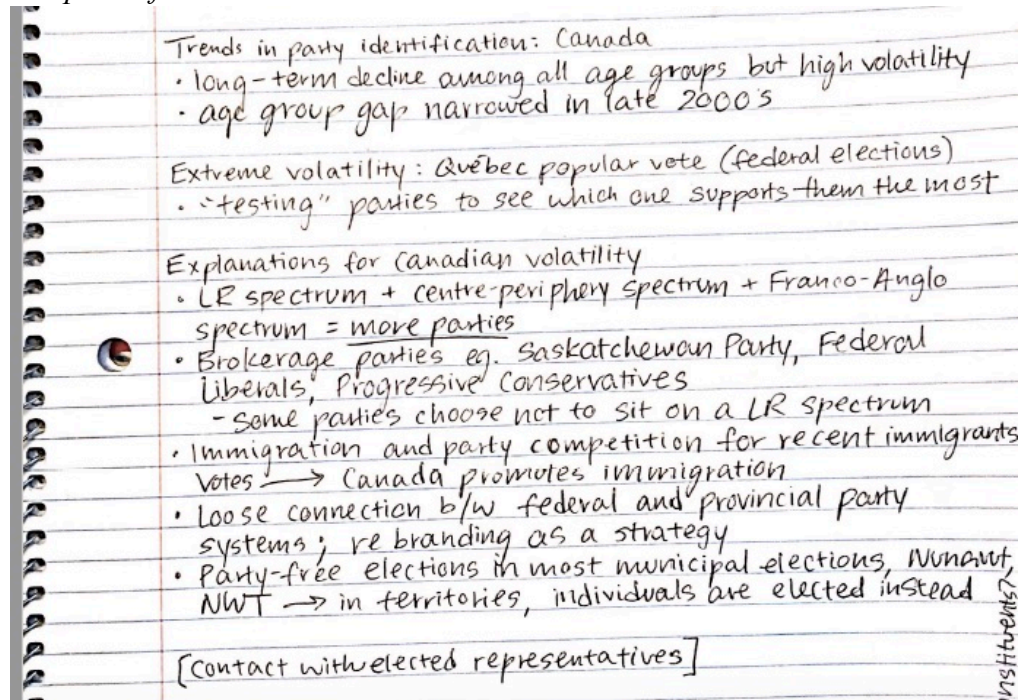 Trends in party identification: Canada
• long-term decline among all age groups but high volatility
• age group gap narrowed in late 2000's
Extreme volatility: Québec popular vote (federal elections)
• "testing" parties to see which one supports them the most
Explanations for Canadian volatility
• LR spectrum + centre-periphery spectrum + Franco-Anglo
spectrum = more parties
• Brokerage parties eg. Saskatchewan Party, Federal
Liberals, Progressive Conservatives
- some parties choose not to sit on a LR spectrum
• Immigration and party competition for recent immigrants
votes → Canada promotes immigration
• Loose connection b/w federal and provincial party
systems; re branding as a strategy
• Party-free elections in most municipal elections, Nunavut,
NWT → in territories, individuals are elected instead
[contact with elected representatives]
nstituents?